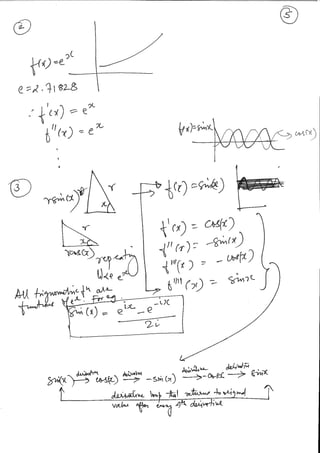 5
2
f(x) = e^x
e = 2.71828
f'(x) = e^x
f''(x) = e^x
f(x) = sinx
cos(x)
3
r sin(x)
r
x
r
x
r cos(x)
f(x) = sin(x)
f'(x) = cos(x)
f''(x) = -sin(x)
f'''(x) = -cos(x)
f''''(x) = sinx
repeating
like e^x
All trignometric fn are
functions of e^x. For eg.
Sin(x) = e^ix - e^-ix
2i
Sin(x) derivative → cos(x) derivative → -sin(x) derivative → -cosx derivative → sinx
derivative loop that returns to original
value after every 4th derivative